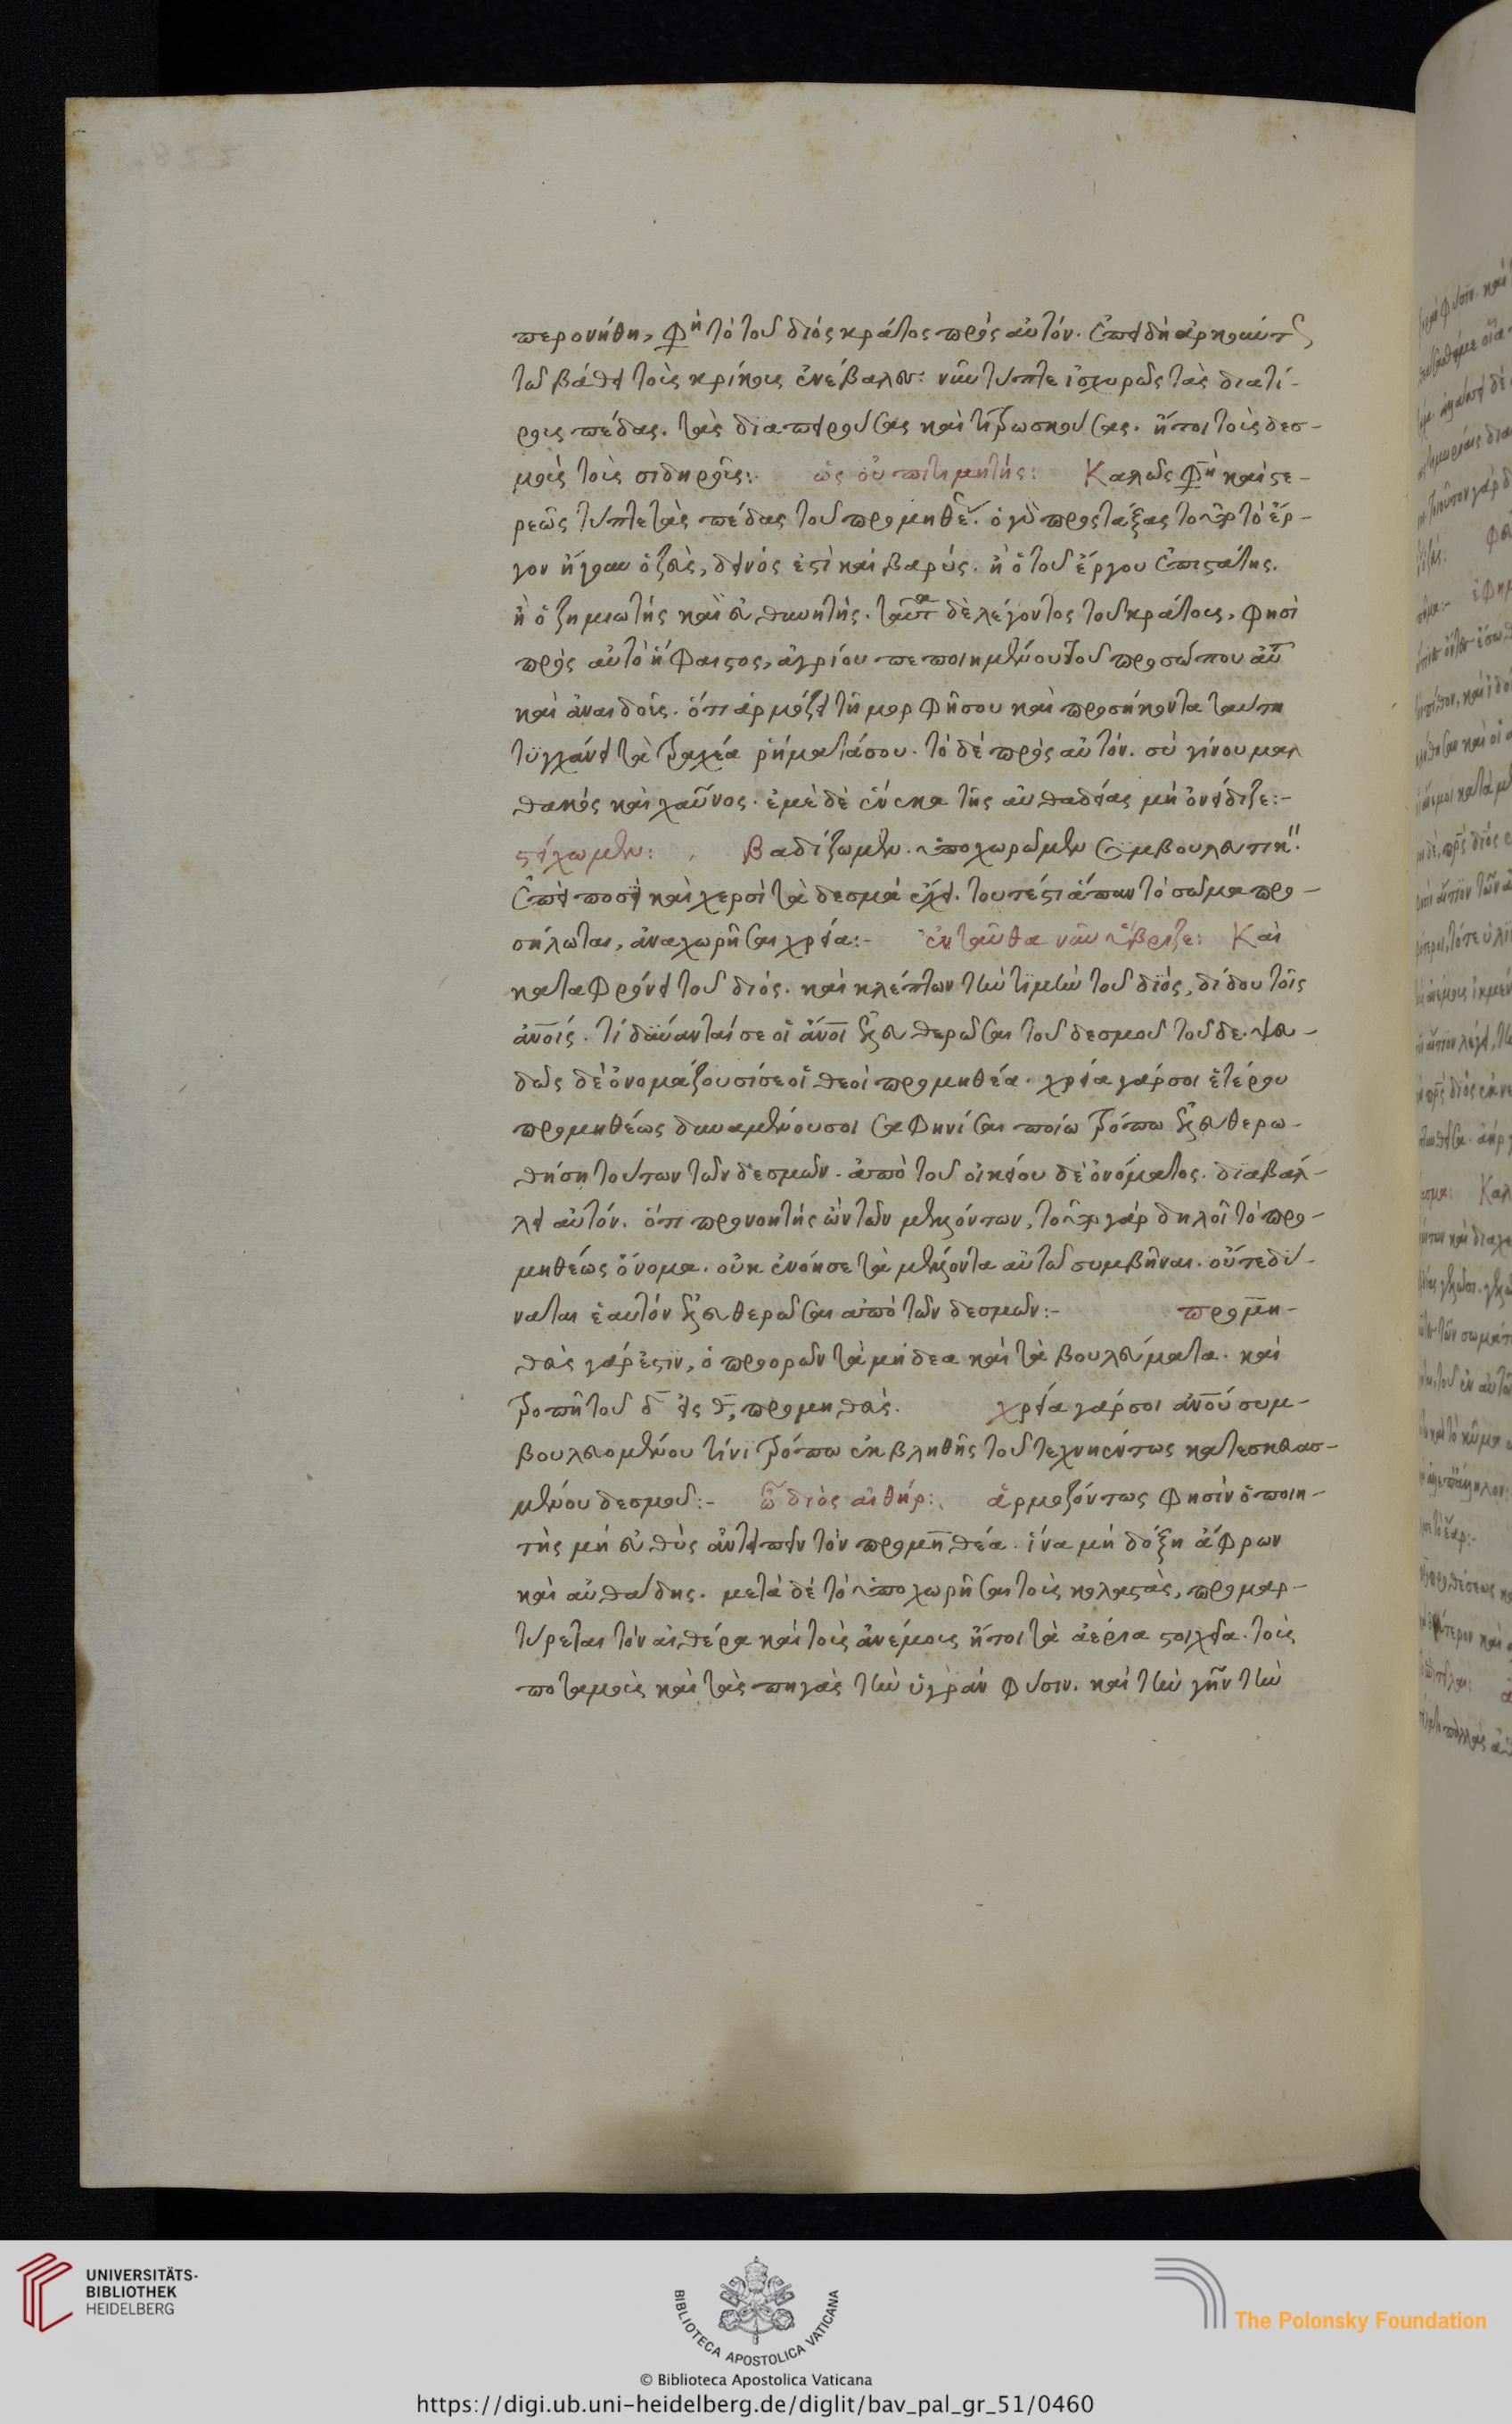 περονήθη, φη τὸ τοῦ διός κράτος πρὸς αὐτόν. ἐπειδὴ ἀρκούντ
τῶ βάθει τοὺς κρίκους ἐνέβαλεν: νῦν τύπτε ἰσχυρῶς τὰς διατό-
ρους πέδας. τὰς διαπειρούσας καὶ τιτρωσκούσας. ἤτοι τοὺς δεσ-
μοὺς τοὺς σιδηροῦς:. ὡς οὑπιτιμητής: Καλῶς φη καὶ στε-
ρεῶς τύπτε τὰς πέδας τοῦ προμηθέ. ὁ γὰρ προστάξας τοῦτο τὸ ἔρ-
γον ἤγουν ὁ ζεὺς, δεινός ἐστὶ καὶ βαρύς. ἢ ὁ τοῦ ἔργου ἐπιστάτης.
ἢ ὁ ζημιωτής καὶ εὐθυνητής. ταῦτα δὲ λέγοντος τοῦ κράτους, φησὶ
πρὸς αὐτὸ ἥφαιστος, ἀγρίου πεποιημένου τοῦ προσώπου αὐτ
καὶ ἀναιδοῦς. ὅτι ἁρμόζει τῆ μορφῆ σου καὶ προσήκοντα ταύτη
τυγχάνει τὰ τραχέα ῥήματά σου. τὸ δὲ πρὸς αὐτόν. σὺ γίνου μαλ
θακός καὶ χαῦνος. ἐμὲ δὲ ἕνεκα τῆς αὐθαδείας μὴ ὀνείδιζε:-
στείχωμεν: βαδίζωμεν. ὑποχωρῶμεν συμβουλευτικ.
ἐπεὶ ποσὶ καὶ χερσὶ τὰ δεσμά ἔχει. τουτέστι ἅπαν τὸ σῶμα προ-
σήλωται, ἀναχωρῆσαι χρεία:- ἐνταῦθα νῦν ὕβριζε: Καὶ
καταφρόνει τοῦ διός. καὶ κλέπτων τὴν τιμὴν τοῦ διός, δίδου τοῖς
ἀνοις. τί δύνανταί σε οἱ ἄνοι ἐξελευθερῶσαι τοῦ δεσμοῦ τοῦδε. ψευ-
δῶς δὲ ὀνομάζουσί σε οἱ θεοὶ προμηθέα. χρεία γάρ σοι ἑτέρου
προμηθέως δυναμένου σοι σαφηνίσαι ποίω τρόπω ἐξελευθερω-
θήση τούτων τῶν δεσμῶν. ἀπὸ τοῦ οἰκείου δὲ ὀνόματος. διαβάλ-
λει αὐτόν. ὅτι προνοητής ὢν τῶν μελλόντων, τοῦτο γάρ δηλοῖ τὸ προ-
μηθέως ὄνομα. οὐκ ἐνόησε τὰ μέλλοντα αὐτῶ συμβῆναι. οὔτε δύ-
ναται ἑαυτόν ἐξελευθερῶσαι ἀπὸ τῶν δεσμῶν:- προμη-
θεὺς γάρ ἐστιν, ὁ προορῶν τὰ μήδεα καὶ τὰ βουλεύματα. καὶ
τροπῆ τοῦ δ εἰς θ, προμηθεύς. χρεία γάρ σοι ἀνου συμ-
βουλευομένου τίνι τρόπω ἐκβληθῆς τοῦ τεχνηέντως κατεσκευασ-
μένου δεσμοῦ:- ὦ διὸς αἰθήρ:. ἁρμοζόντως φησὶν ὁ ποιη-
τὴς μὴ εὐθὺς ἀντειπεῖν τὸν προμηθέα. ἵνα μὴ δόξη ἄφρων
καὶ αὐθάδης. μετὰ δέ τὸ ὑποχωρῆσαι τοὺς κολαστὰς, προμαρ-
τύρεται τόν αἰθέρα καὶ τοὺς ἀνέμους ἤτοι τὰ ἀέρια στοιχεῖα. τοὺς
ποταμοὺς καὶ τὰς πηγὰς τὴν ὑγρὰν φύσιν. καὶ τὴν γῆν τὴν
UNIVERSITÄTS-
BIBLIOTHEK
HEIDELBERG
BIBLIOTECA APOSTOLICA VATICANA
The Polonsky Foundation
© Biblioteca Apostolica Vaticana
https://digi.ub.uni-heidelberg.de/diglit/bav_pal_gr_51/0460